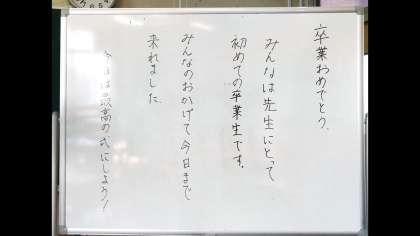 卒業おめでとう。
みんなは先生にとって
初めての卒業生です。
みんなのおかげで今日まで
来れました。
今日は最高の式にしよう！